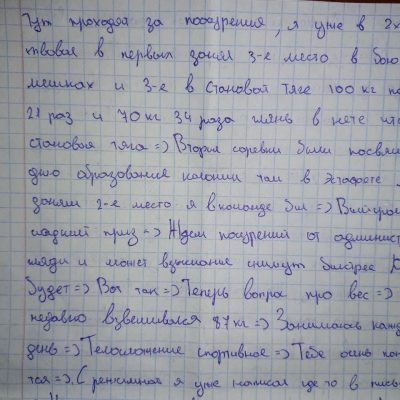 Тут проходят за поощрения, я уже в 2х
ствовал в первых занял 3-е место в бою
мешках и 3-е в становой тяге 100 кг по
21 раз и 70 кг 34 раза глянь в нете что
становая тяга => Вторая соревки были посвящ
дню образования колонии там в эстафете
заняли 2-е место я в команде был =>
сладкий приз => Ждем поощрений от админист
гляди и может взыскание снимут быстрее
будет => Вот так => Теперь вопрос про вес =>
недавно взвешивался 87 кг => Занимаюсь кажд
день => Телосложение спортивное => Тебе очень пон
тся => С режимная я уже написал где то в пись